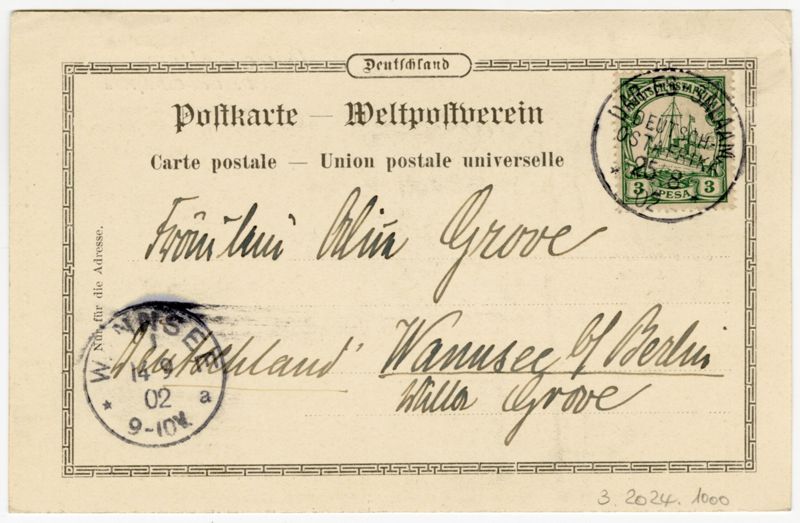 Deutschland
Postkarte — Weltpostverein
Carte postale — Union postale universelle
DAR-ES-SALAAM
DEUTSCH-
OSTAFRIKA
25 8
02
3 PESA 3
Nur für die Adresse.
Fräulein Grove
Deutschland Wannsee b/ Berlin
Villa Grove
WANNSEE
1
14 9
02 a
9-10V.
3. 2024. 1000